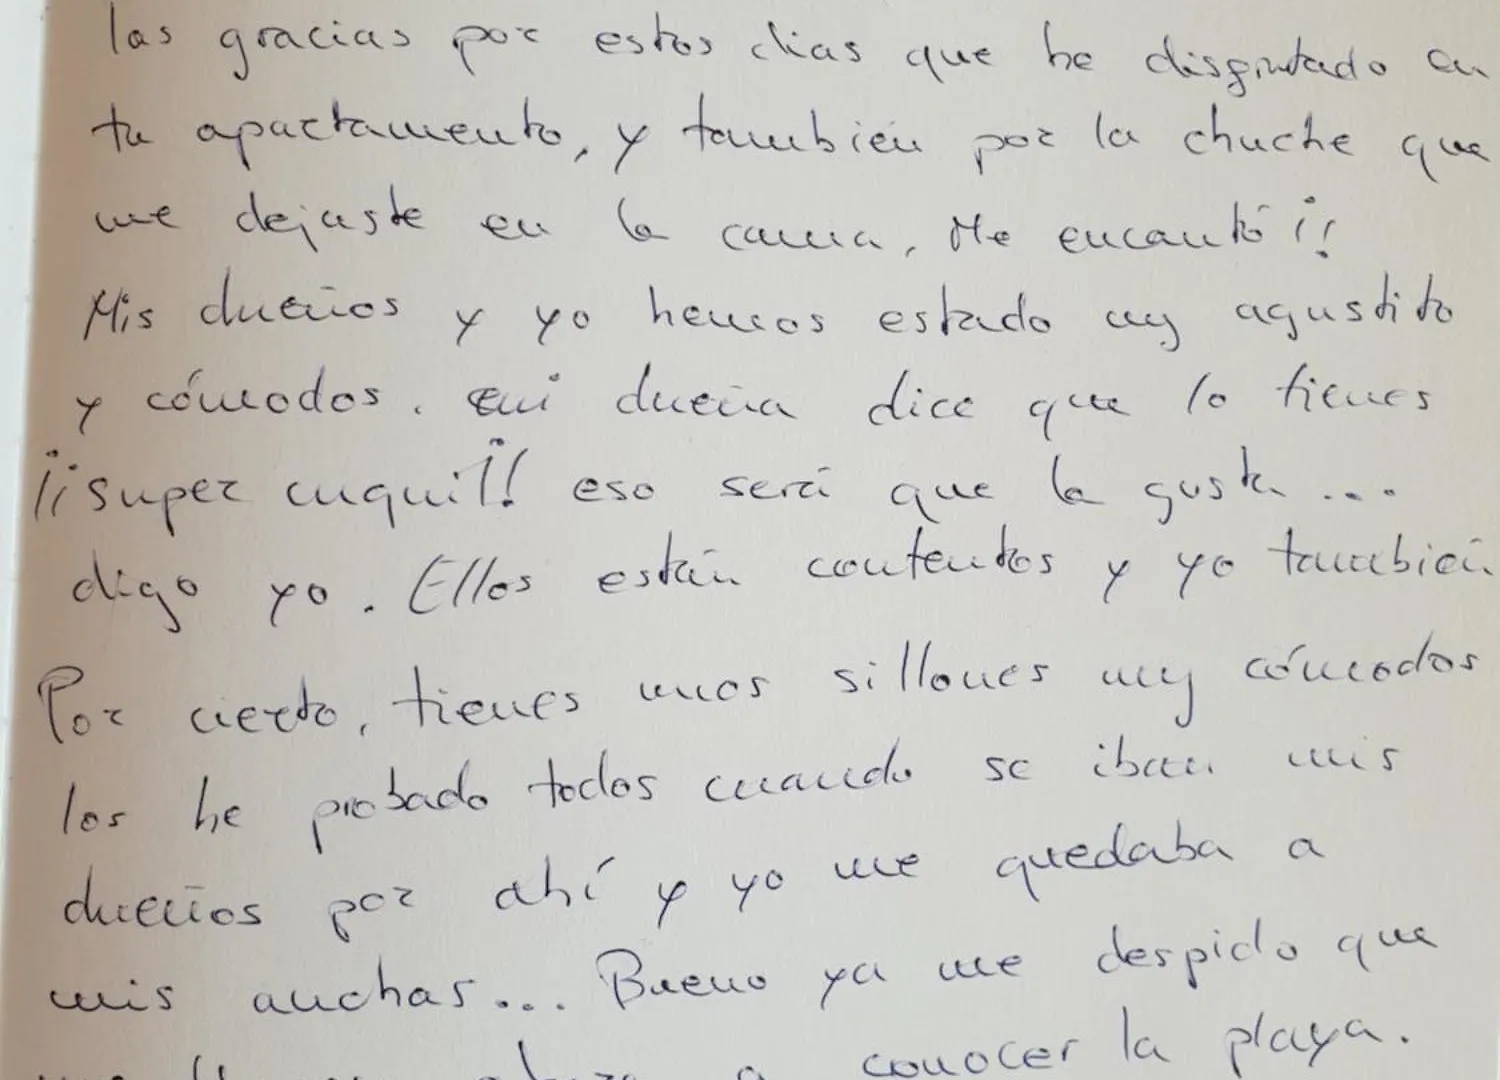 las gracias por estos días que he disfrutado en
tu apartamento, y también por la chuche que
me dejaste en la cama, Me encantó ¡!
Mis dueños y yo hemos estado muy agustito
y cómodos. mi dueña dice que lo tienes
¡¡super cuqui!! eso será que la gusta...
digo yo. Ellos están contentos y yo también.
Por cierto, tienes unos sillones muy cómodos
los he probado todos cuando se iban mis
dueños por ahí y yo me quedaba a
mis anchas... Bueno ya me despido que
me a conocer la playa.